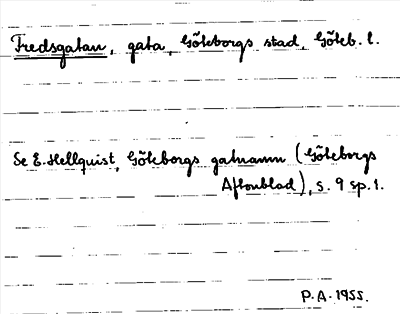 Fredsgatan, gata, Göteborgs stad, Göteb. l.
Se E. Hellquist, Göteborgs gatnamn (Göteborgs
Aftonblad), s. 9 sp. 1.
P.A. 1955.